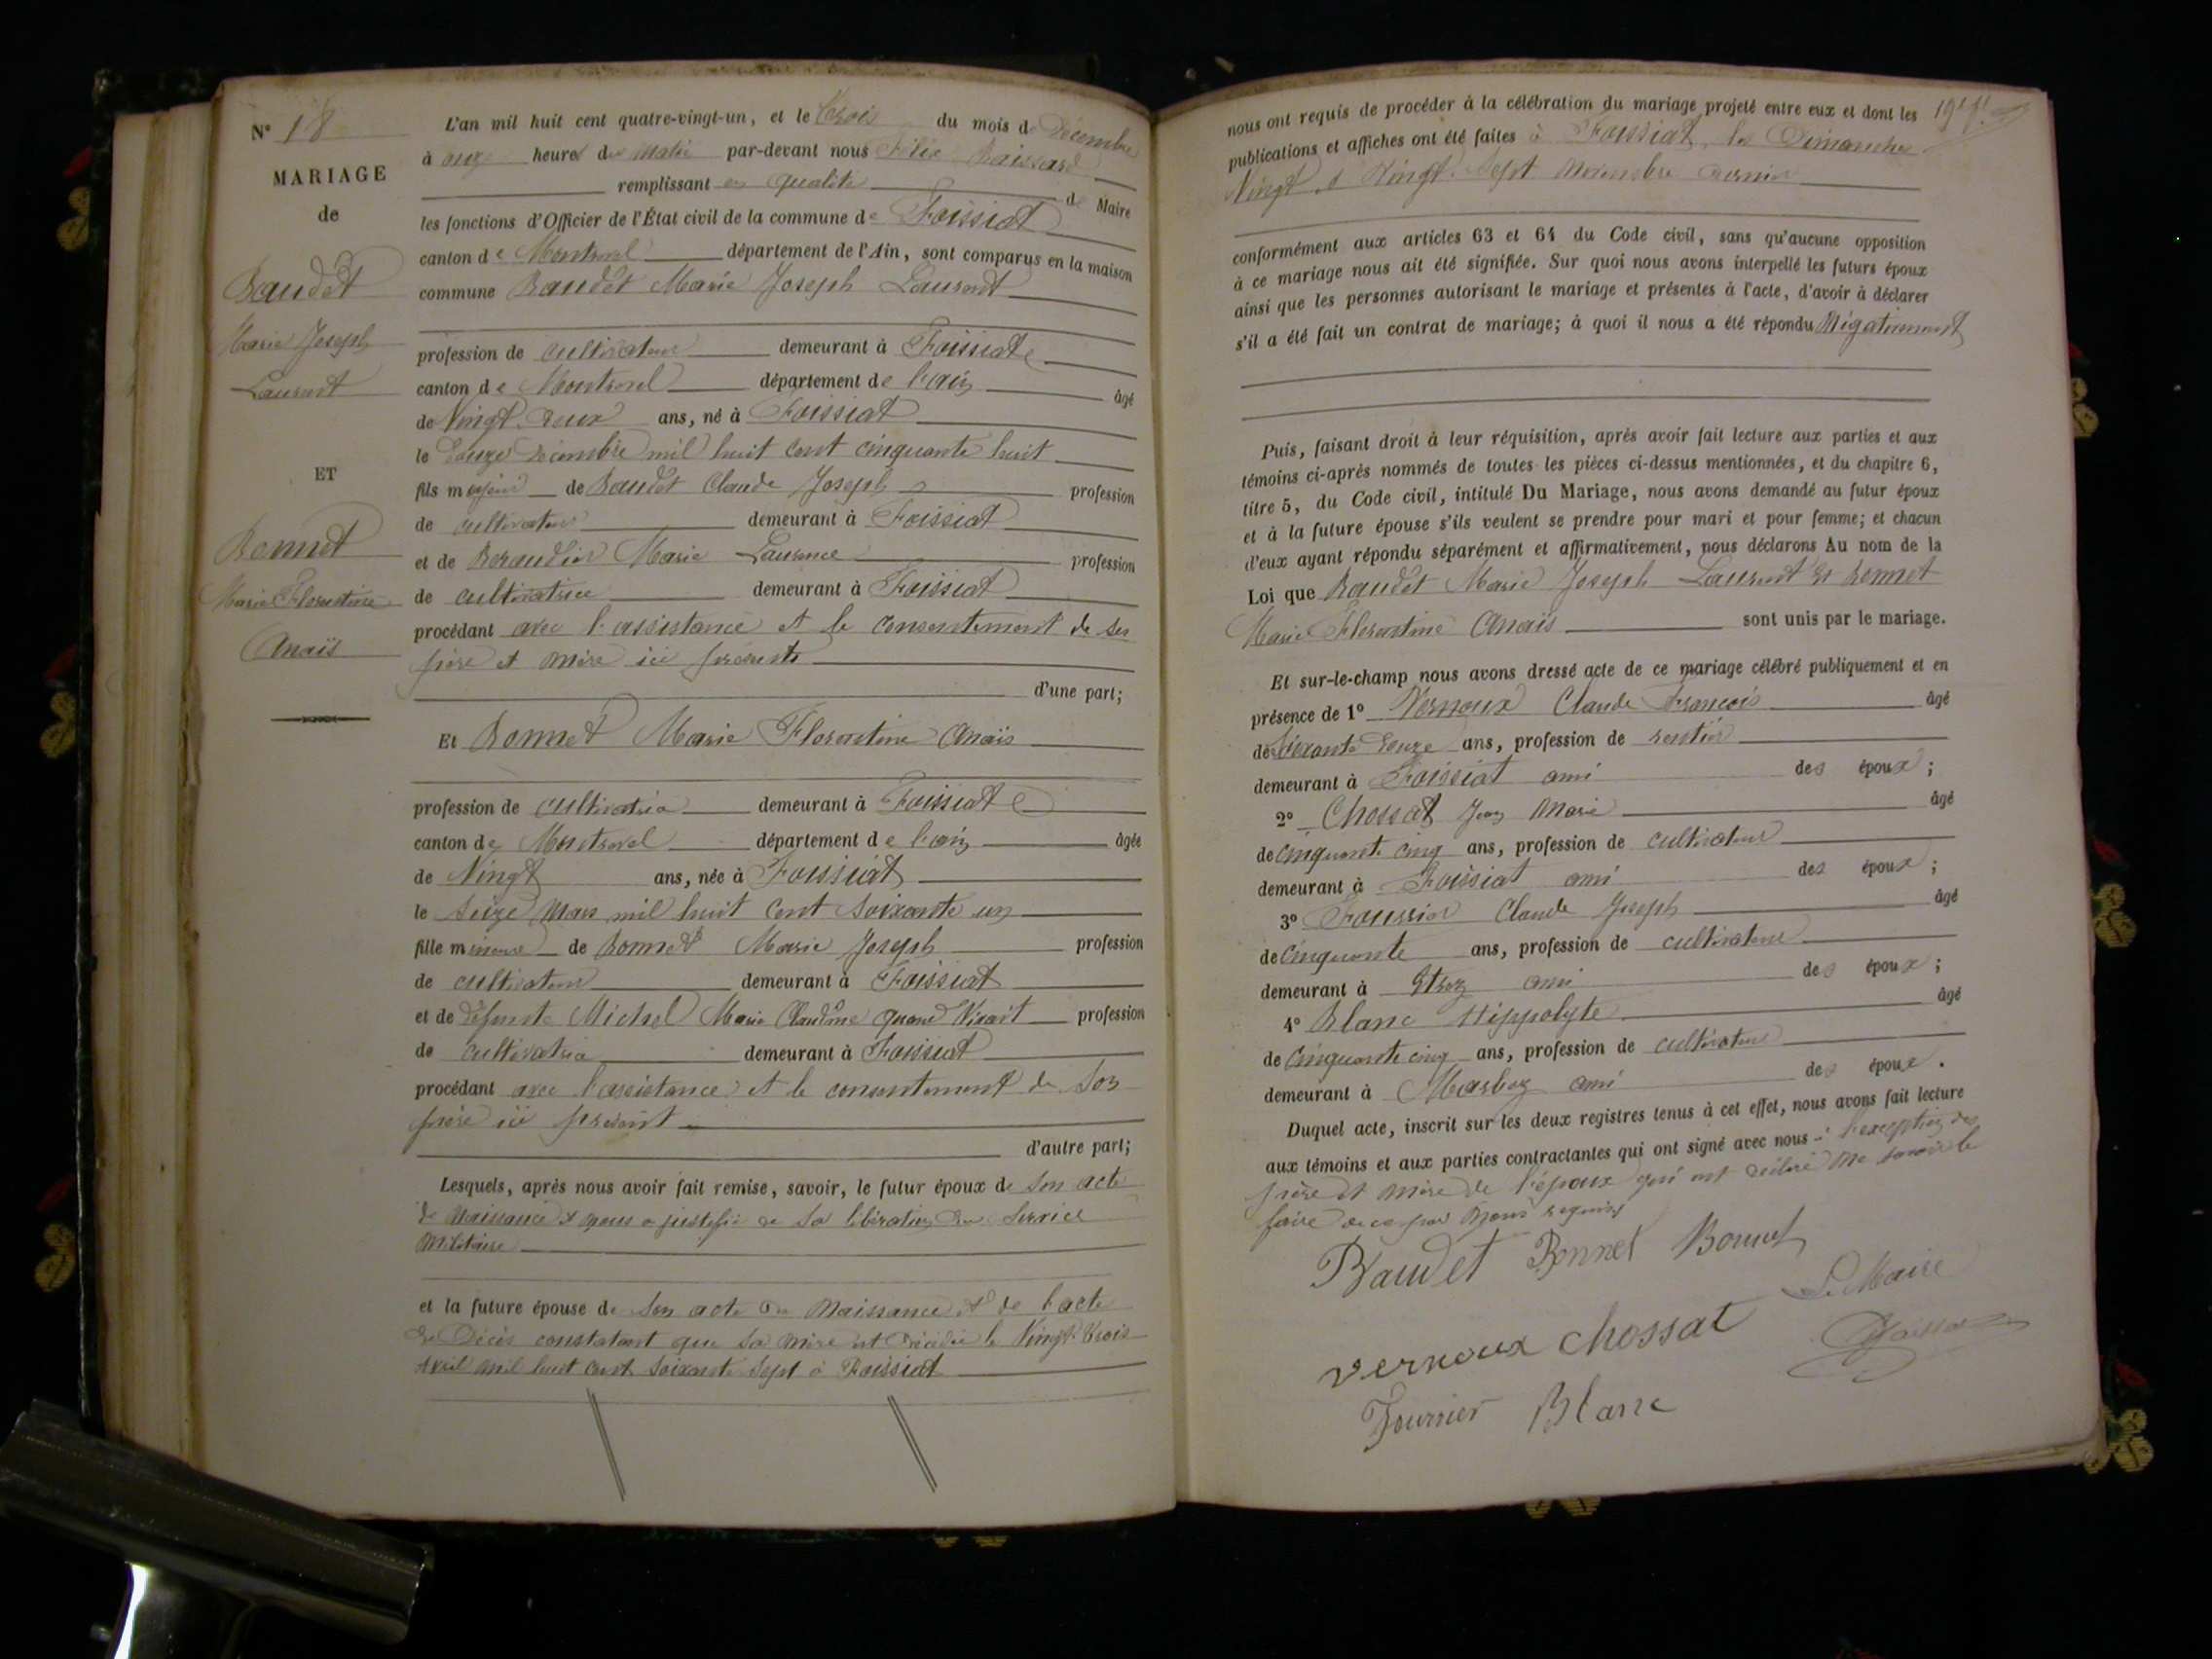 N° 18
MARIAGE
de
Baudet
Marie Joseph
Laurent
ET
Bonnet
Marie Florentine
Anaïs
L'an mil huit cent quatre-vingt-un, et le trois du mois de Décembre
à onze heures du matin par-devant nous Félix
remplissant en qualité de Maire
les fonctions d'Officier de l'État civil de la commune de Foissiat
canton de Montrevel département de l'Ain, sont comparus en la maison
commune Baudet Marie Joseph Laurent
profession de cultivateur demeurant à Foissiat
canton de Montrevel département de l'ain âgé
de Vingt deux ans, né à Foissiat
le Douze Décembre mil huit cent cinquante huit
fils majeur de Baudet Claude Joseph profession
de cultivateur demeurant à Foissiat
et de Beraudier Marie Laurence profession
de cultivatrice demeurant à Foissiat
procédant avec l'assistance et le consentement de ses
père et mère ici présents
d'une part;
Et Bonnet Marie Florentine Anaïs
profession de cultivatrice demeurant à Foissiat
canton de Montrevel département de l'ain âgée
de Vingt ans, née à Foissiat
le seize Mars mil huit cent soixante un
fille mineure de Bonnet Marie Joseph profession
de cultivateur demeurant à Foissiat
et de défunte Michel Marie Claudine quand Vivait profession
de cultivatrice demeurant à Foissiat
procédant avec l'assistance et le consentement de son
père ici présent
d'autre part;
Lesquels, après nous avoir fait remise, savoir, le futur époux de son acte
de Naissance & nous a justifié de sa libération du service
Militaire
et la future épouse de son acte de Naissance et de l'acte
de Décès constatant que sa mère est décédée le Vingt trois
Avril mil huit cent soixante sept à Foissiat
nous ont requis de procéder à la célébration du mariage projeté entre eux et dont les
publications et affiches ont été faites à Foissiat les Dimanches
Vingt & Vingt-sept Novembre dernier
conformément aux articles 63 et 64 du Code civil, sans qu'aucune opposition
à ce mariage nous ait été signifiée. Sur quoi nous avons interpellé les futurs époux
ainsi que les personnes autorisant le mariage et présentes à l'acte, d'avoir à déclarer
s'il a été fait un contrat de mariage; à quoi il nous a été répondu Négativement
Puis, faisant droit à leur réquisition, après avoir fait lecture aux parties et aux
témoins ci-après nommés de toutes les pièces ci-dessus mentionnées, et du chapitre 6,
titre 5, du Code civil, intitulé Du Mariage, nous avons demandé au futur époux
et à la future épouse s'ils veulent se prendre pour mari et pour femme; et chacun
d'eux ayant répondu séparément et affirmativement, nous déclarons Au nom de la
Loi que Baudet Marie Joseph Laurent et Bonnet
Marie Florentine Anaïs sont unis par le mariage.
Et sur-le-champ nous avons dressé acte de ce mariage célébré publiquement et en
présence de 1° Vernoux Claude François âgé
de soixante douze ans, profession de rentier
demeurant à Foissiat ami des époux;
2° Chossat Jean Marie âgé
de cinquante cinq ans, profession de cultivateur
demeurant à Foissiat ami des époux;
3° Fournier Claude Joseph âgé
de cinquante ans, profession de cultivateur
demeurant à Etrez ami des époux;
4° Blanc Hippolyte âgé
de cinquante cinq ans, profession de cultivateur
demeurant à Marboz ami des époux.
Duquel acte, inscrit sur les deux registres tenus à cet effet, nous avons fait lecture
aux témoins et aux parties contractantes qui ont signé avec nous à l'exception des
père et mère de l'époux qui ont déclaré ne savoir le
faire de ce par nous requis
Baudet Bonnet Bonnet
Le Maire
vernoux chossat
Fournier Blanc